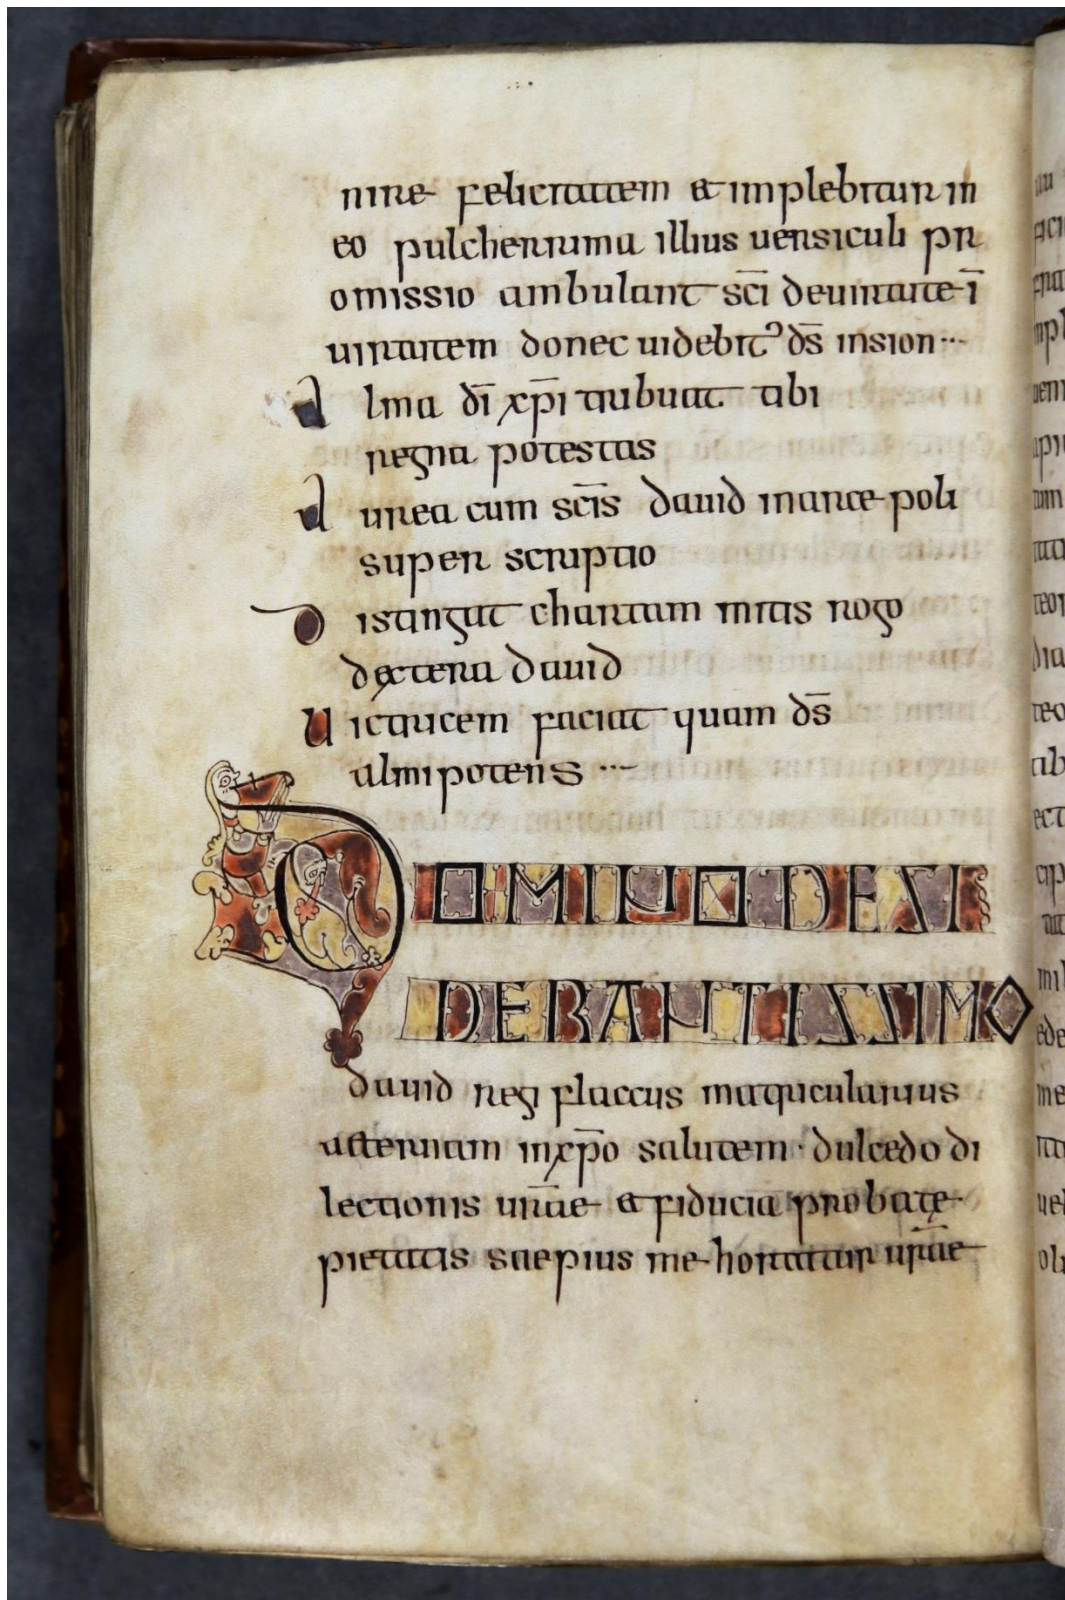 nire felicitatem et implebitur in
eo pulcherrima illius uersiculi pr
omissio ambulant sc̄i deuirtute ī
uirtutem donec uidebit᾽ ds̄ insion
Alma dī xp̄i tribuat tibi
regna potestas
Aurea cum sc̄is dauid inarce poli
super scriptio
Distingat chartam mitis rogo
dextera dauid
Uictricem faciat quam ds̄
almipotens
DOMINO DESI
DERANTISSIMO
dauid reg flaccus matricularius
aeternam inxp̄o salutem · dulcedo di
lectionis ur̄ae et fiducia probatę
pietatis saepius me hortatur ur̄ae